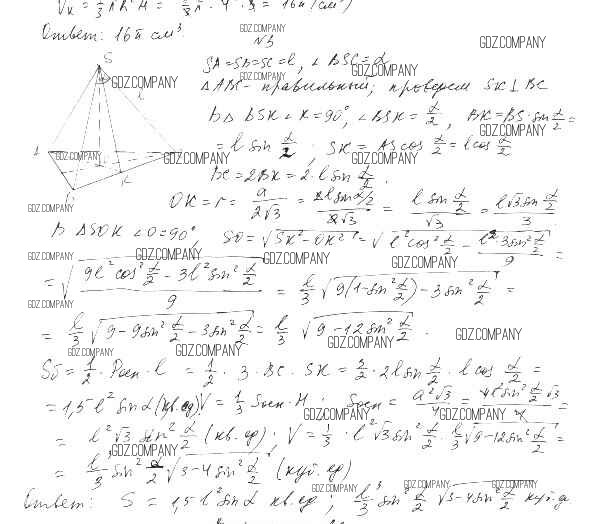 Vк = 1/3 πR²H = 1/3 π · 4² · 3 = 16π (см³)
Ответ: 16π см³.
GDZ.COMPANY
N3
GDZ.COMPANY
S
SA=SB=SC=l, ∠BSC=α
GDZ.COMPANY
GDZ.COMPANY
GDZ.COMPANY
l
ΔABC - правильный; проведем SK⊥BC
В Δ BSK ∠K=90°, ∠BSK = α/2, BK=BS·sin α/2 =
GDZ.COMPANY
= l sin α/2; SK = BS cos α/2 = l cos α/2
GDZ.COMPANY
GDZ.COMPANY
GDZ.COMPANY
K
BC=2BK=2·l sin α/2.
OK=r= a/2√3 = 2l sin α/2 / 2√3 = l sin α/2 / √3 = l√3 sin α/2 / 3
GDZ.COMPANY
В ΔSOK ∠O=90°, SO=√SK²-OK² = √l²cos² α/2 - l²·3sin² α/2 / 9 =
GDZ.COMPANY
GDZ.COMPANY
GDZ.COMPANY
GDZ.COMPANY
= √9l²cos² α/2 - 3l²sin² α/2 / 9 = l/3 √9(1-sin² α/2) - 3sin² α/2 =
GDZ.COMPANY
= l/3 √9-9sin² α/2 - 3sin² α/2 = l/3 √9-12sin² α/2.
GDZ.COMPANY
GDZ.COMPANY
GDZ.COMPANY
GDZ.COMPANY
Sб = 1/2 Pосн · l = 1/2 · 3 · BC · SK = 3/2 · 2l sin α/2 · l cos α/2 =
= 1,5 l² sin α (кв.ед) V = 1/3 Sосн·H; Sосн = a²√3/4 = 4l² sin² α/2 √3 / 4 =
GDZ.COMPANY
GDZ.COMPANY
= l²√3 sin² α/2 (кв.ед); V = 1/3 · l²√3 sin² α/2 · l/3 √9-12sin² α/2 =
GDZ.COMPANY
GDZ.COMPANY
= l³/3 sin² α/2 √3-4sin² α/2 (куб.ед)
GDZ.COMPANY
GDZ.COMPANY
GDZ.COMPANY
Ответ: S = 1,5 l² sin α кв.ед; l³/3 sin² α/2 √3-4sin² α/2 куб.ед